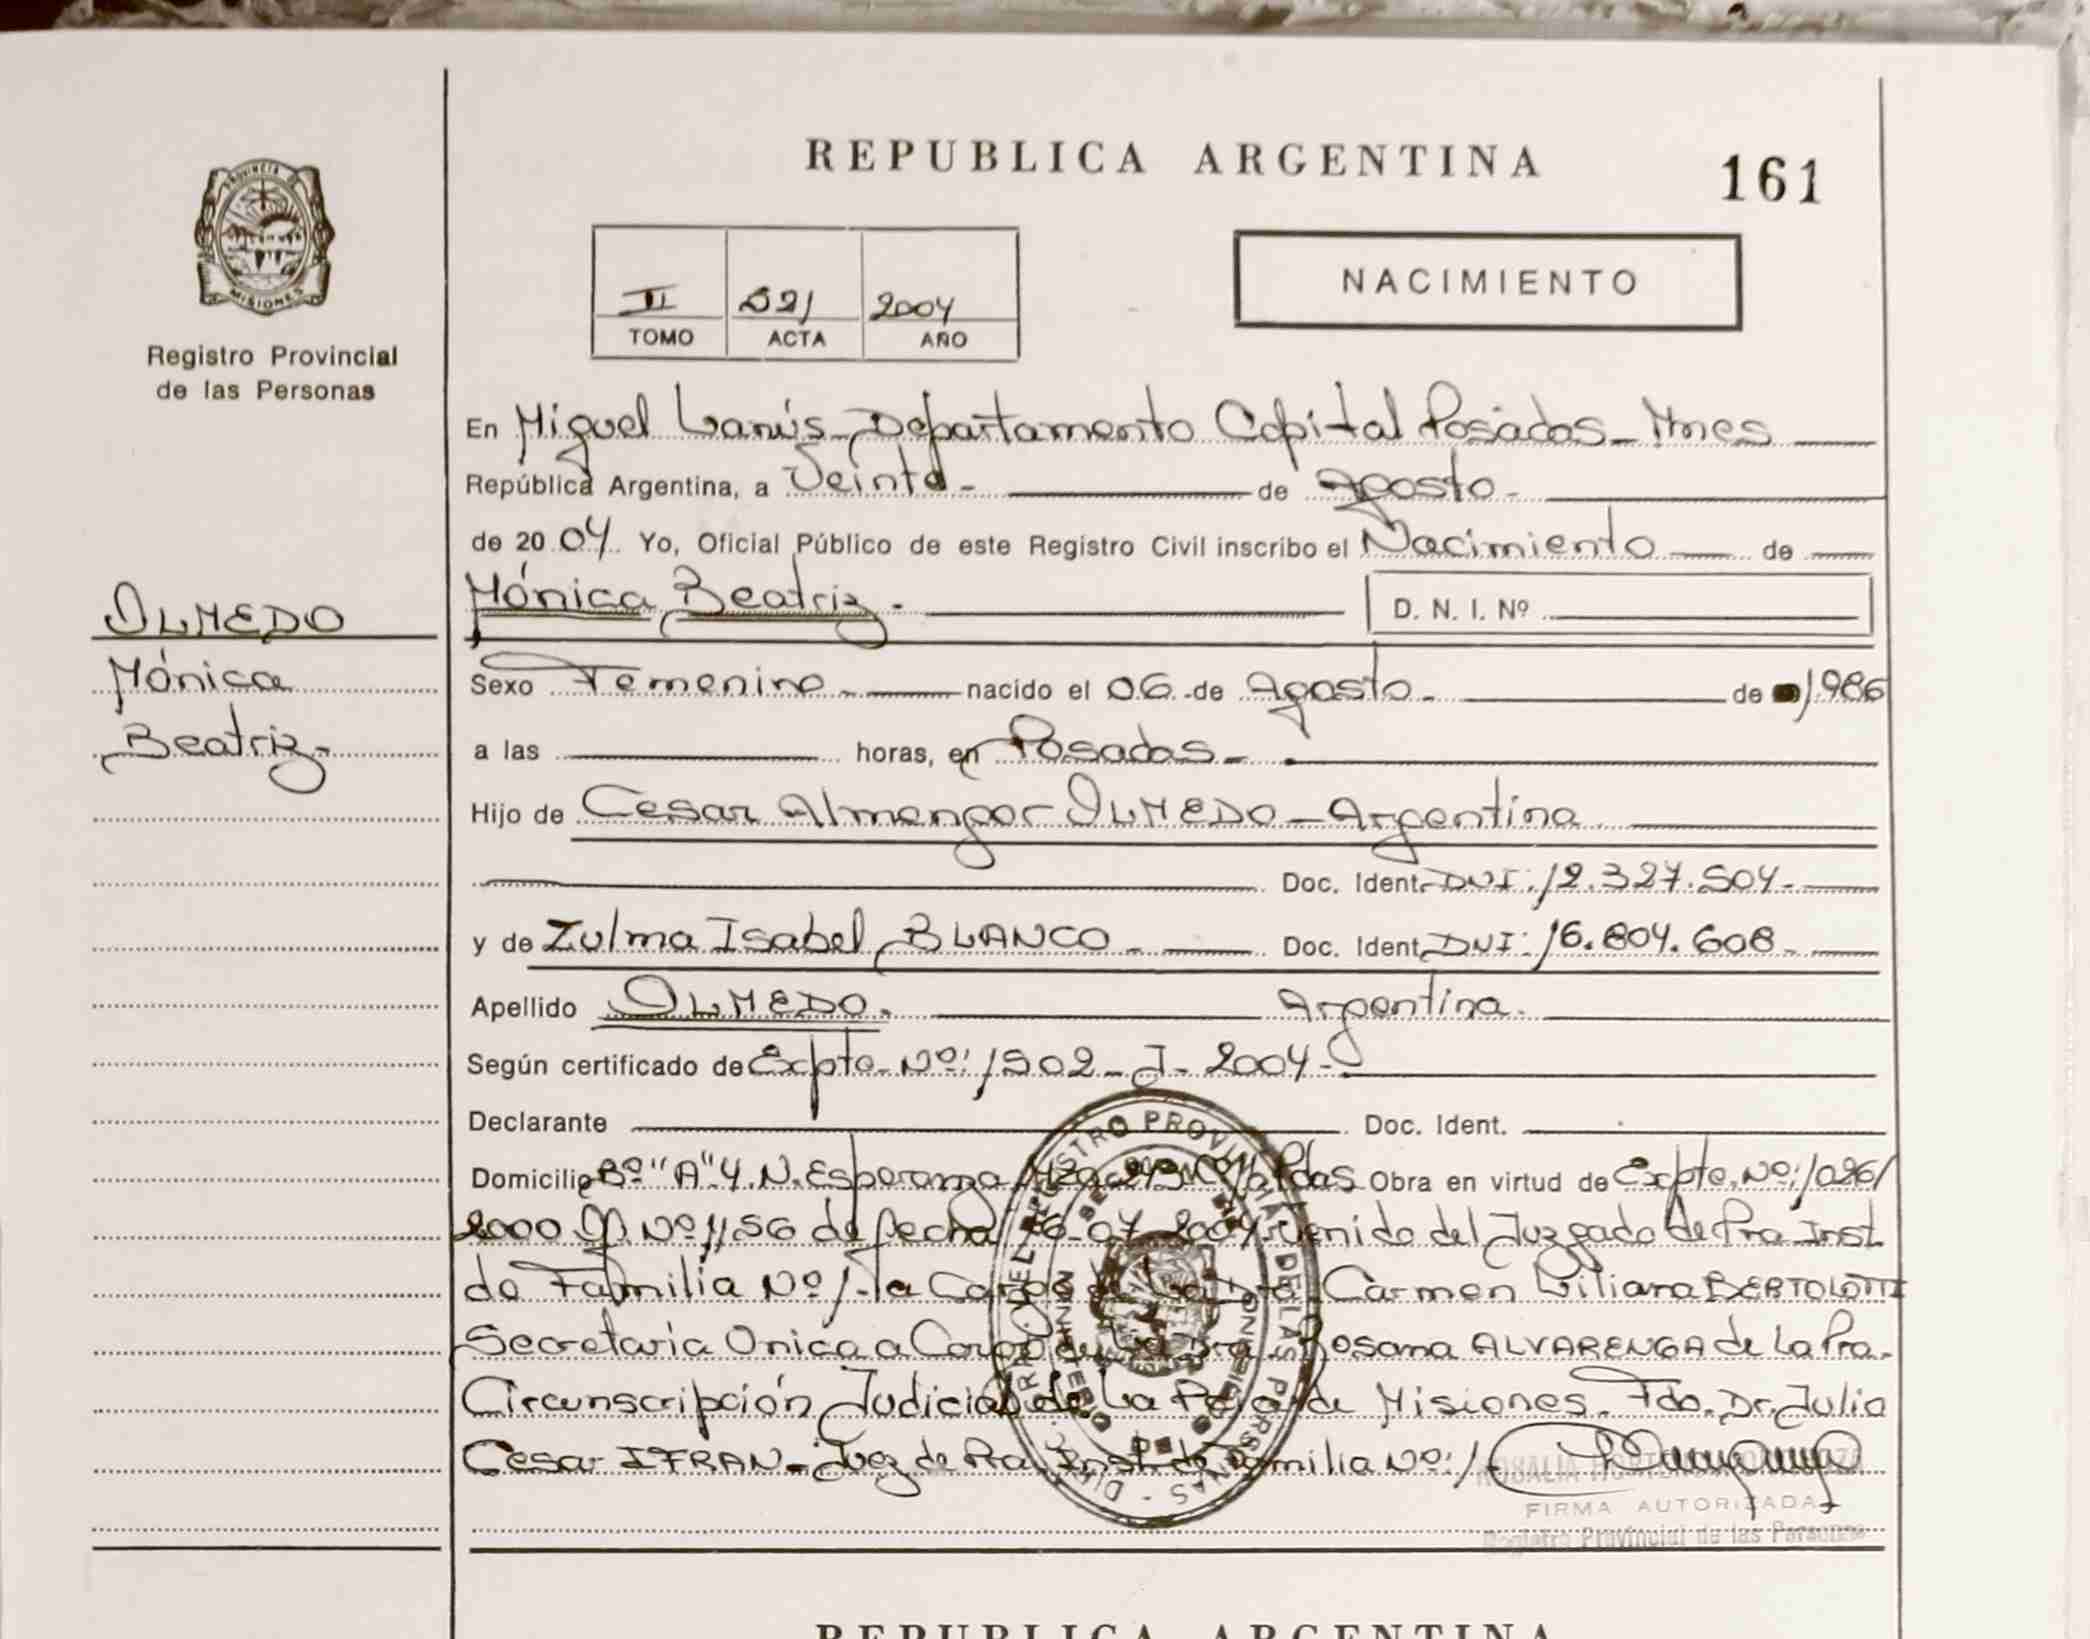 REPUBLICA ARGENTINA
161
PROVINCIA DE
MISIONES
Registro Provincial
de las Personas
II 521 2004
TOMO ACTA AÑO
NACIMIENTO
En Miguel Lanús - Departamento Capital Posadas - Mnes
República Argentina, a Veinte - de Agosto -
de 2004 Yo, Oficial Público de este Registro Civil inscribo el Nacimiento de
Mónica Beatriz - D. N. I. Nº
OLMEDO
Mónica
Beatriz -
Sexo Femenino - nacido el 06 - de Agosto - de 1986
a las horas, en Posadas -
Hijo de Cesar Almengor OLMEDO - Argentina
Doc. Ident. DNI: 12.327.504 -
y de Zulma Isabel BLANCO - Doc. Ident. DNI: 16.804.608 -
Apellido OLMEDO. Argentina.
Según certificado de Expte. Nº: 1502 - J - 2004 -
Declarante Doc. Ident.
Domicilio Bº "A" 4. N. Esperanza Pdas Obra en virtud de Expte. Nº: 1026/
2000 Of. Nº 1156 de fecha 16-07-2004 venido del Juzgado de Pra Inst
de Familia Nº 1 - a Cargo de La Dra. Carmen Liliana BERTOLOTTI
Secretaria Unica a Cargo de La Dra. Rosana ALVARENGA de La Pra.
Circunscripción Judicial de La Pcia de Misiones. Fdo. Dr. Julio
Cesar IFRAN - Juez de Pra Inst. de Familia Nº: 1
ROSALIA
FIRMA AUTORIZADA
Registro Provincial de las Personas
REGISTRO PROVINCIAL DE LAS PERSONAS
REPUBLICA ARGENTINA